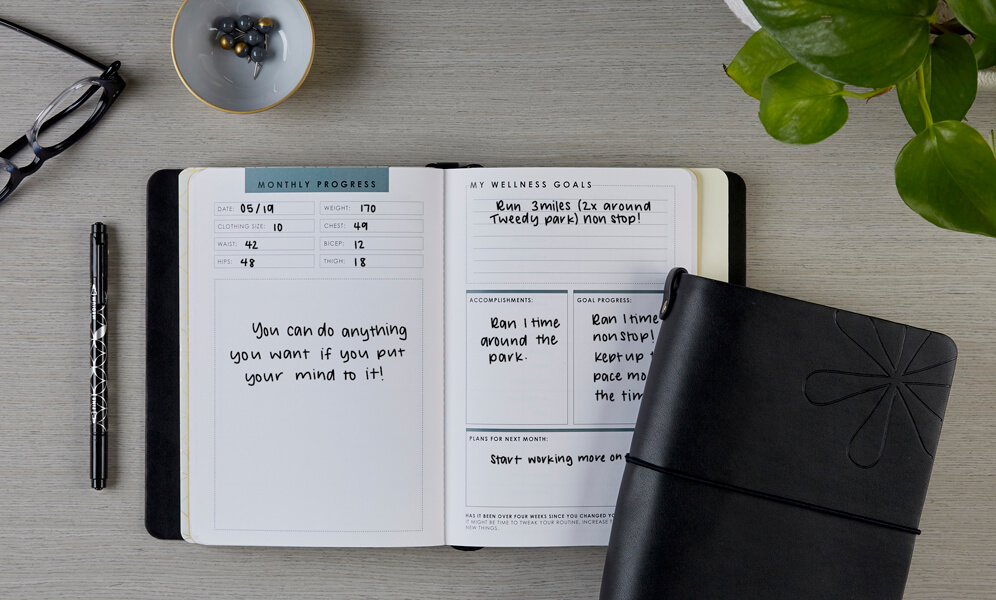 MONTHLY PROGRESS
DATE: 05/19
WEIGHT: 170
CLOTHING SIZE: 10
CHEST: 49
WAIST: 42
BICEP: 12
HIPS: 48
THIGH: 18
You can do anything
you want if you put
your mind to it!
MY WELLNESS GOALS
Run 3miles (2x around
Tweedy park) non stop!
ACCOMPLISHMENTS:
Ran 1 time
around the
park.
GOAL PROGRESS:
Ran 1 time
nonstop!
kept up
pace
the
PLANS FOR NEXT MONTH:
Start working more on
HAS IT BEEN OVER FOUR WEEKS SINCE YOU CHANGED
IT MIGHT BE TIME TO TWEAK YOUR ROUTINE, INCREASE
NEW THINGS.